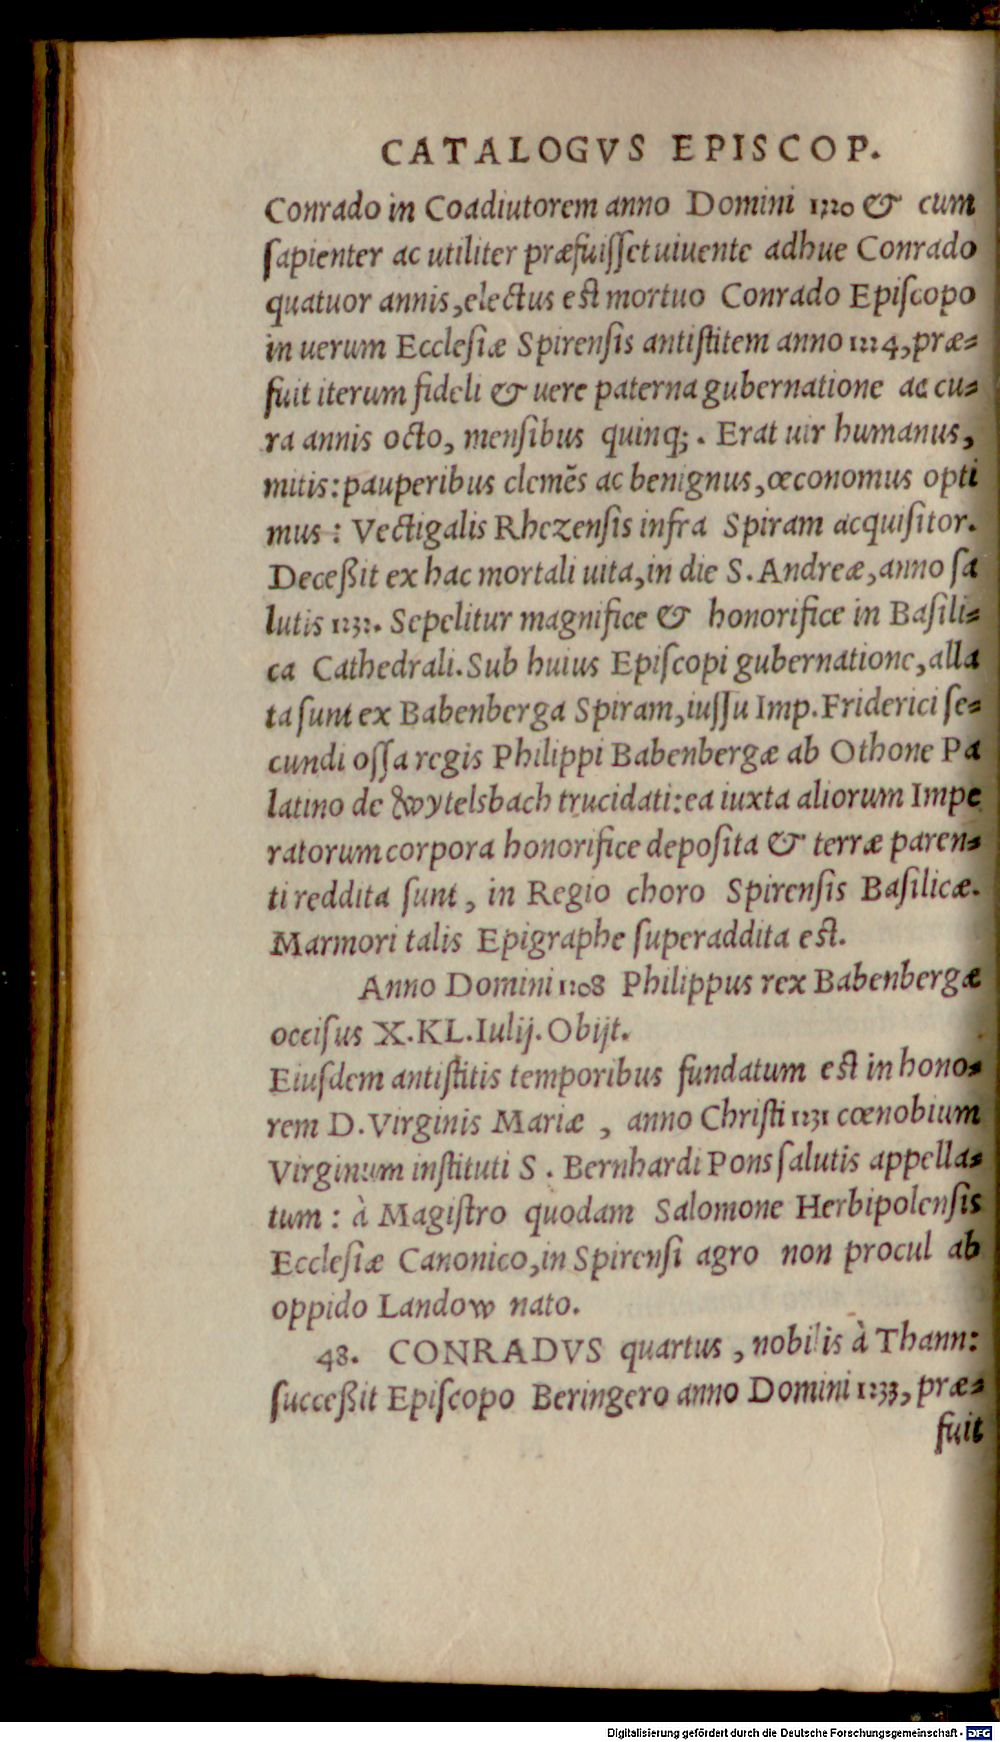 CATALOGVS EPISCOP.
Conrado in Coadiutorem anno Domini 1220 & cum
sapienter ac utiliter præfuisset uiuente adhuc Conrado
quatuor annis, electus est mortuo Conrado Episcopo
in uerum Ecclesiæ Spirensis antistitem anno 1224, præ-
fuit iterum fideli & uere paterna gubernatione ac cu-
ra annis octo, mensibus quinq;. Erat uir humanus,
mitis: pauperibus clemẽs ac benignus, œconomus opti
mus: Vectigalis Rhezensis infra Spiram acquisitor.
Deceßit ex hac mortali uita, in die S. Andreæ, anno sa
lutis 1232. Sepelitur magnifice & honorifice in Basili-
ca Cathedrali. Sub huius Episcopi gubernatione, alla
ta sunt ex Babenberga Spiram, iussu Imp. Friderici se-
cundi ossa regis Philippi Babenbergæ ab Othone Pa
latino de Wytelsbach trucidati: ea iuxta aliorum Impe
ratorum corpora honorifice deposita & terræ paren-
ti reddita sunt, in Regio choro Spirensis Basilicæ.
Marmori talis Epigraphe superaddita est.
Anno Domini 1208 Philippus rex Babenbergæ
occisus X. KL. Iulij. Obijt.
Eiusdem antistitis temporibus fundatum est in hono-
rem D. Virginis Mariæ, anno Christi 1231 cœnobium
Virginum instituti S. Bernhardi Pons salutis appella-
tum: à Magistro quodam Salomone Herbipolensis
Ecclesiæ Canonico, in Spirensi agro non procul ab
oppido Landow nato.
48. CONRADVS quartus, nobilis à Thann:
succeßit Episcopo Beringero anno Domini 1233, præ-
fuit
Digitalisierung gefördert durch die Deutsche Forschungsgemeinschaft - DFG